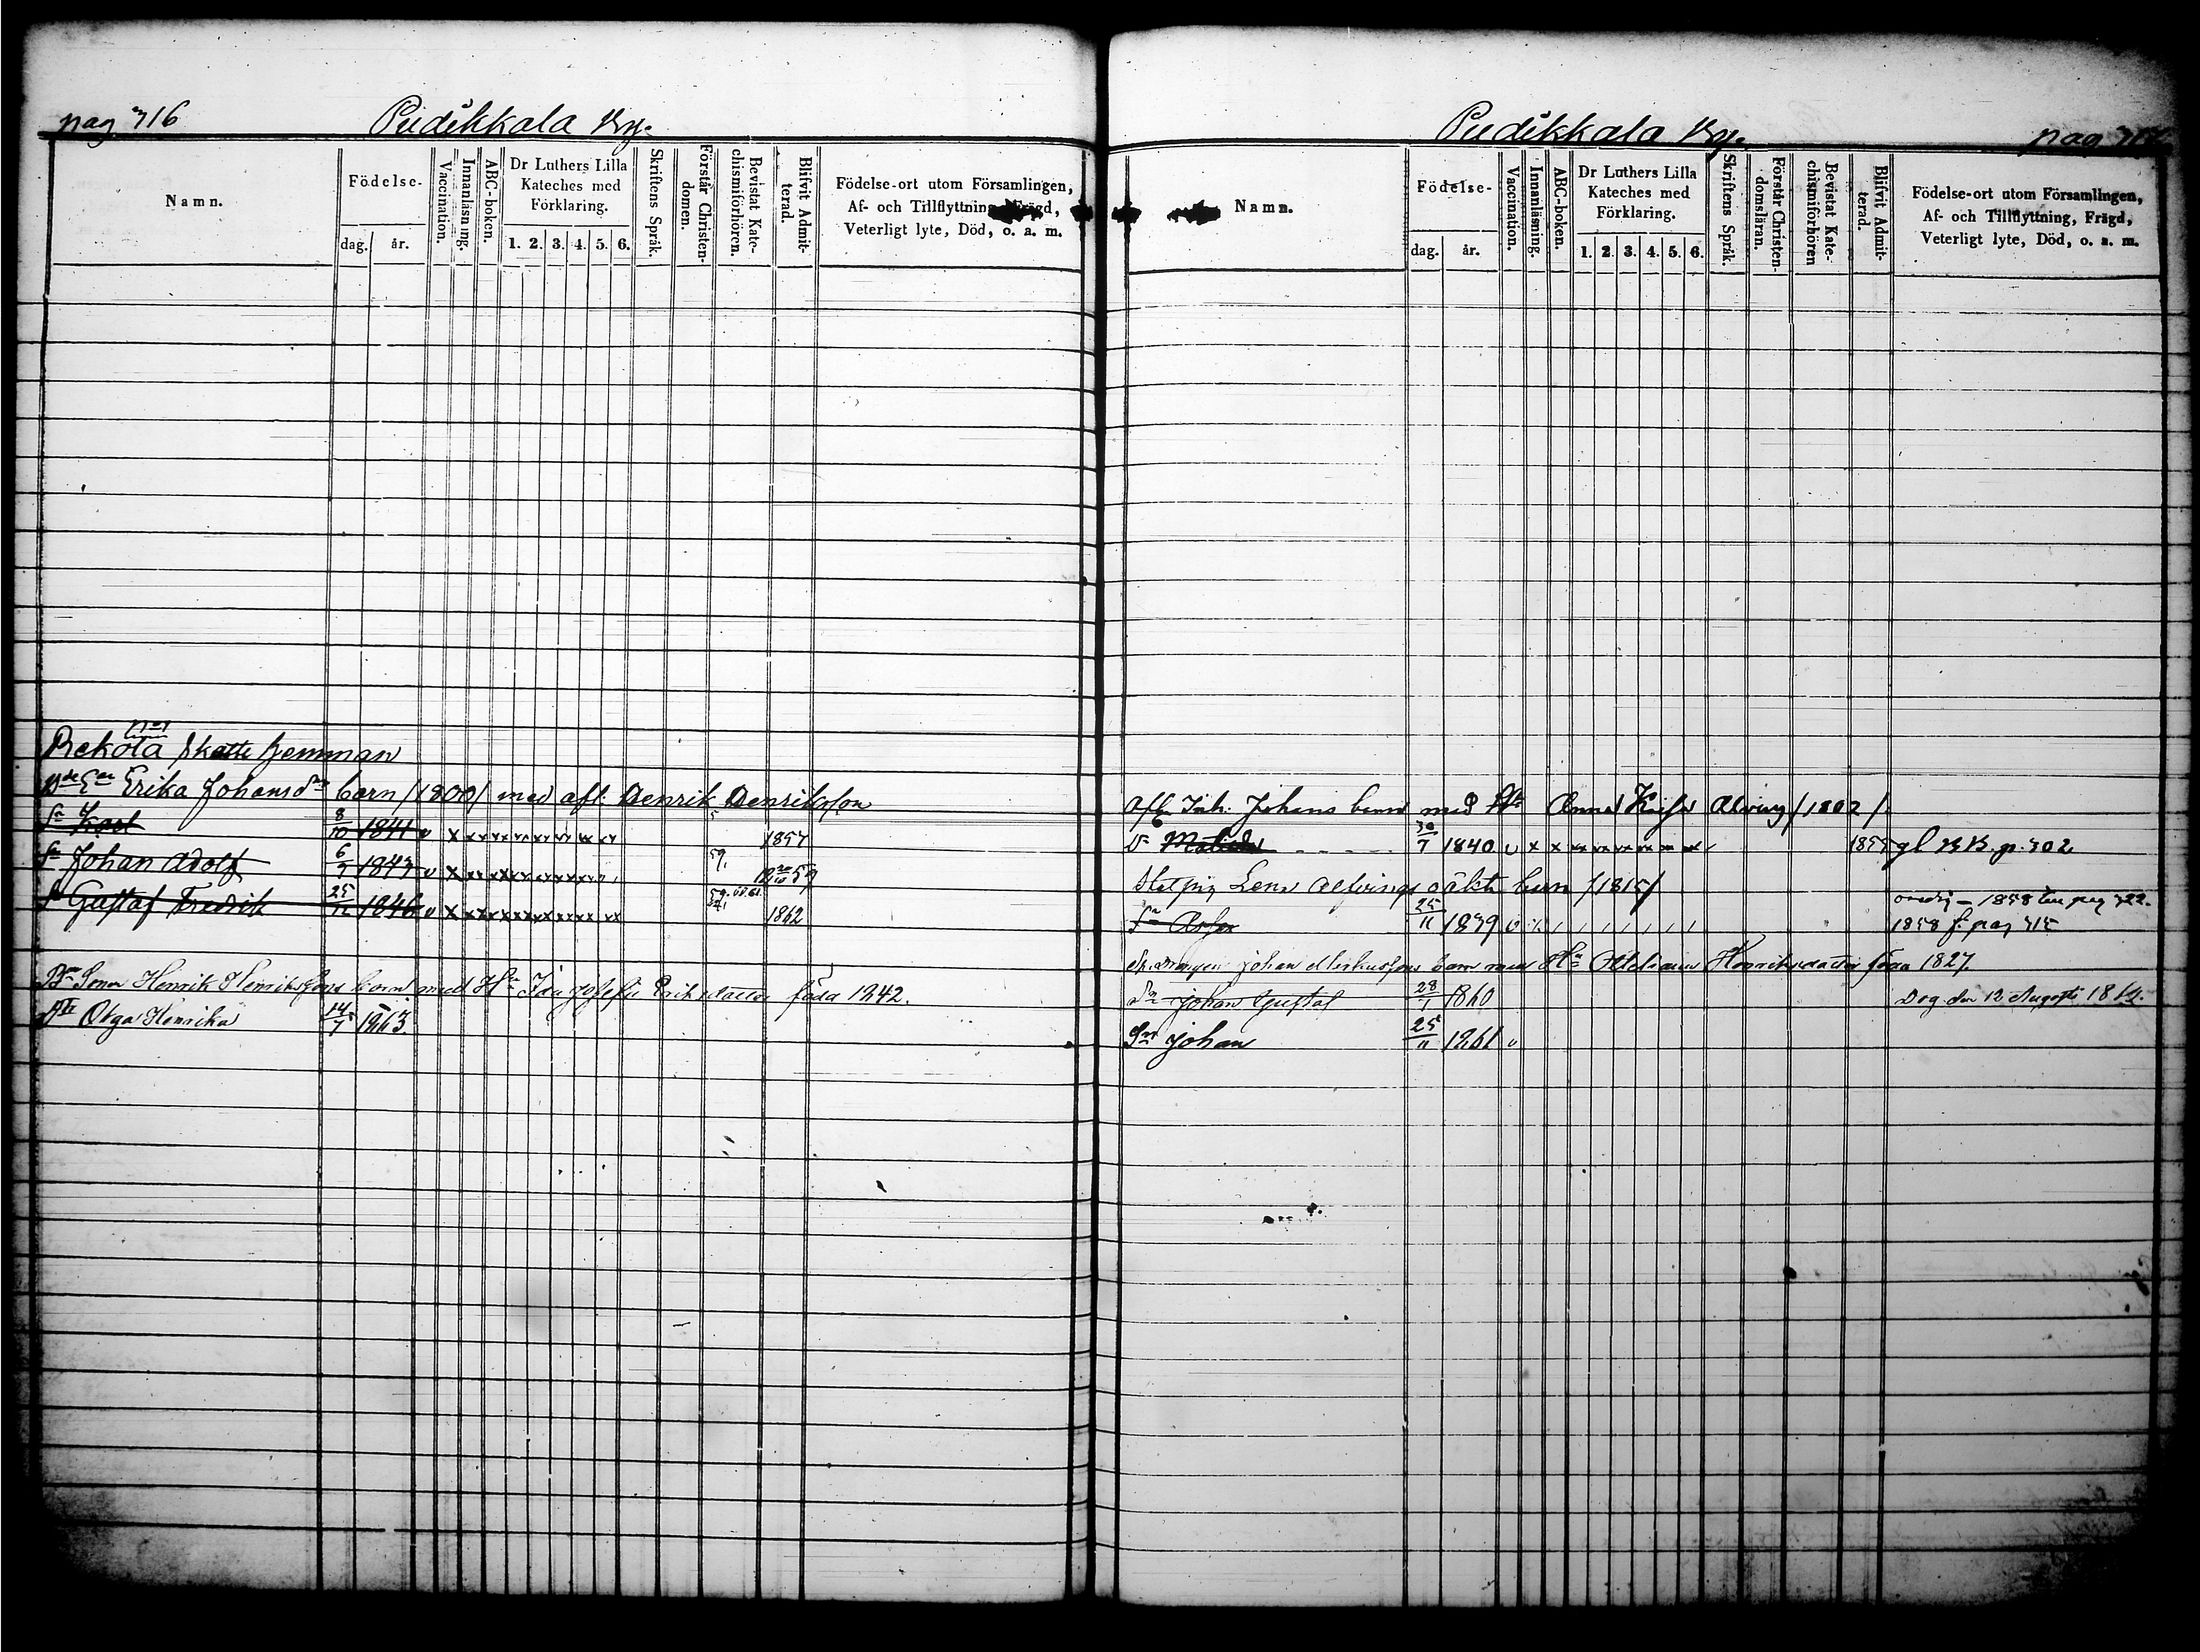 pag 316 Pudikkala By.
Namn. Födelse- dag. år. Vaccination. Innanläsning. ABC-boken. Dr Luthers Lilla Kateches med Förklaring. 1. 2. 3. 4. 5. 6. Skriftens Språk. Förstår Christendomen. Bevistat Katechismiförhören. Blifvit Admitterad. Födelse-ort utom Församlingen, Af- och Tillflyttning, Frägd, Veterligt lyte, Död, o. a. m.
No 1
Rekola Skatte hemman
Erika Johansdr barn /1800/ med afl. Henrik Henriksson
Sn Karl 8/10 1841 v x 1857
Sn Johan Adolf 6/9 1843 v x 59. 59
Sn Gustaf Fredrik 25/12 1846 v x 1862
Bde Sonen Henrik Henrikssons barn med Hu Ida Josefa Eriksdotter född 1842.
Dtr Olga Henrika 14/7 1863.
Pudikkala By. pag 316
Namn. Födelse- dag. år. Vaccination. Innanläsning. ABC-boken. Dr Luthers Lilla Kateches med Förklaring. 1. 2. 3. 4. 5. 6. Skriftens Språk. Förstår Christendomsläran. Bevistat Katechismiförhören Blifvit Admitterad. Födelse-ort utom Församlingen, Af- och Tillflyttning, Frägd, Veterligt lyte, Död, o. a. m.
Afl. Inh. Johans barn med Anna Alving /1802/
Dr Matilda 30/7 1840 v x x 1857 gl KB. p. 302
Lena Alvings oäkta barn /1815/
Sn 25/11 1839 v 1858 pag 322.
1858 fr pag 315
Johan barn med Hu Henriksdotter född 1827.
Sn Johan Gustaf 28/1 1860 Dog den 12 Augusti 1864.
Sn Johan 25/11 1861 v